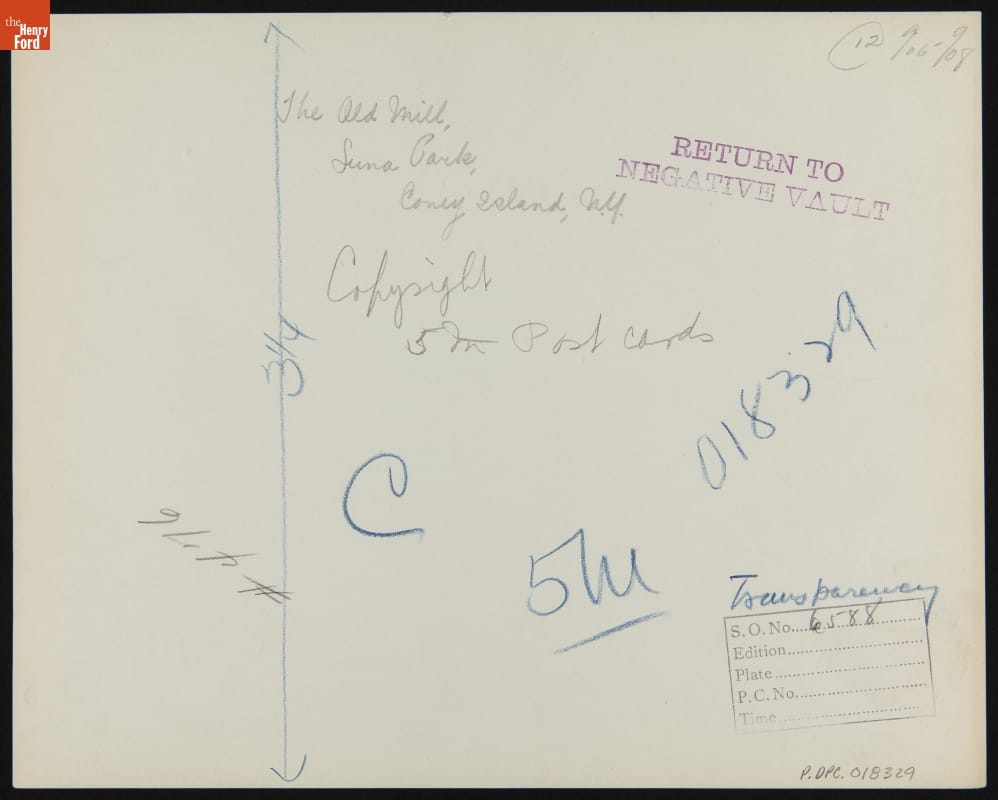 the
Henry
Ford
12 9/06-9/08
The Old Mill,
Luna Park,
Coney Island, N.Y.
RETURN TO
NEGATIVE VAULT
Copyright
5M Post cards
3 1/4
018329
C
5M
Transparency
S.O.No. 6588
Edition
Plate
P.C.No.
Time
P.DPC. 018329